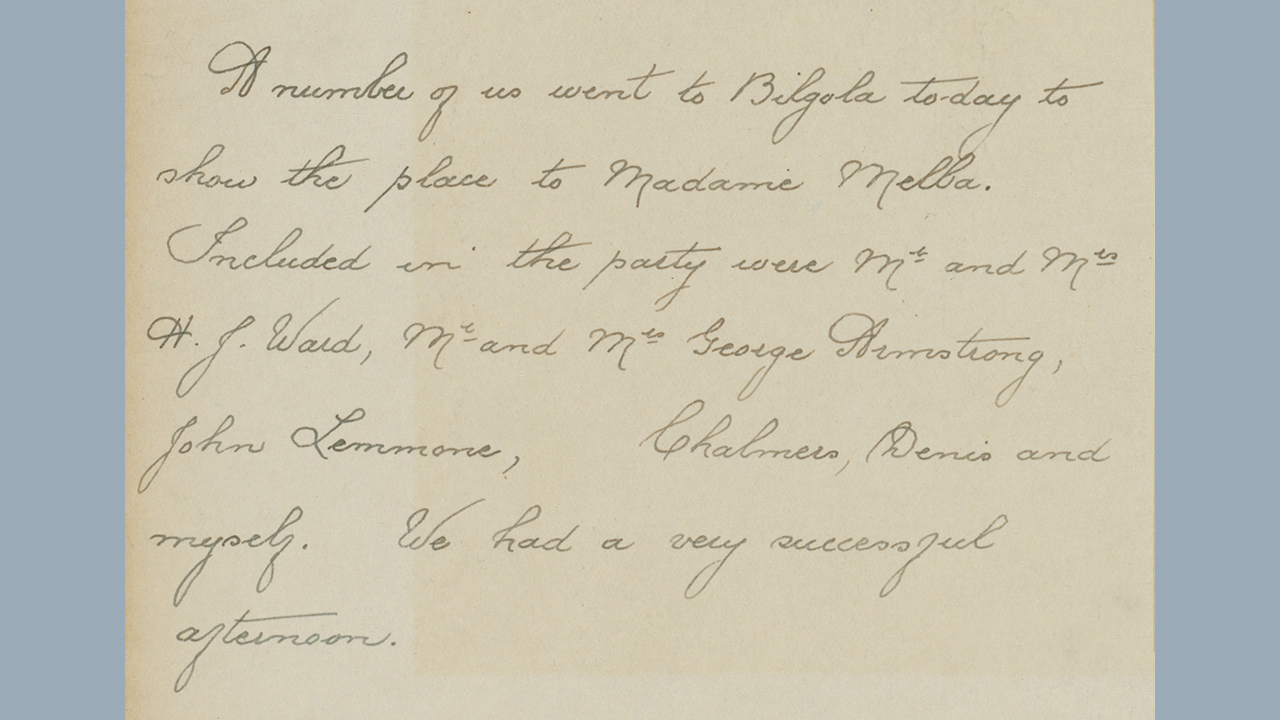 A number of us went to Bilgola to-day to
show the place to Madame Melba.
Included in the party were Mr and Mrs
H. J. Ward, Mr and Mrs George Armstrong,
John Lemmone, Chalmers, Denis and
myself. We had a very successful
afternoon.